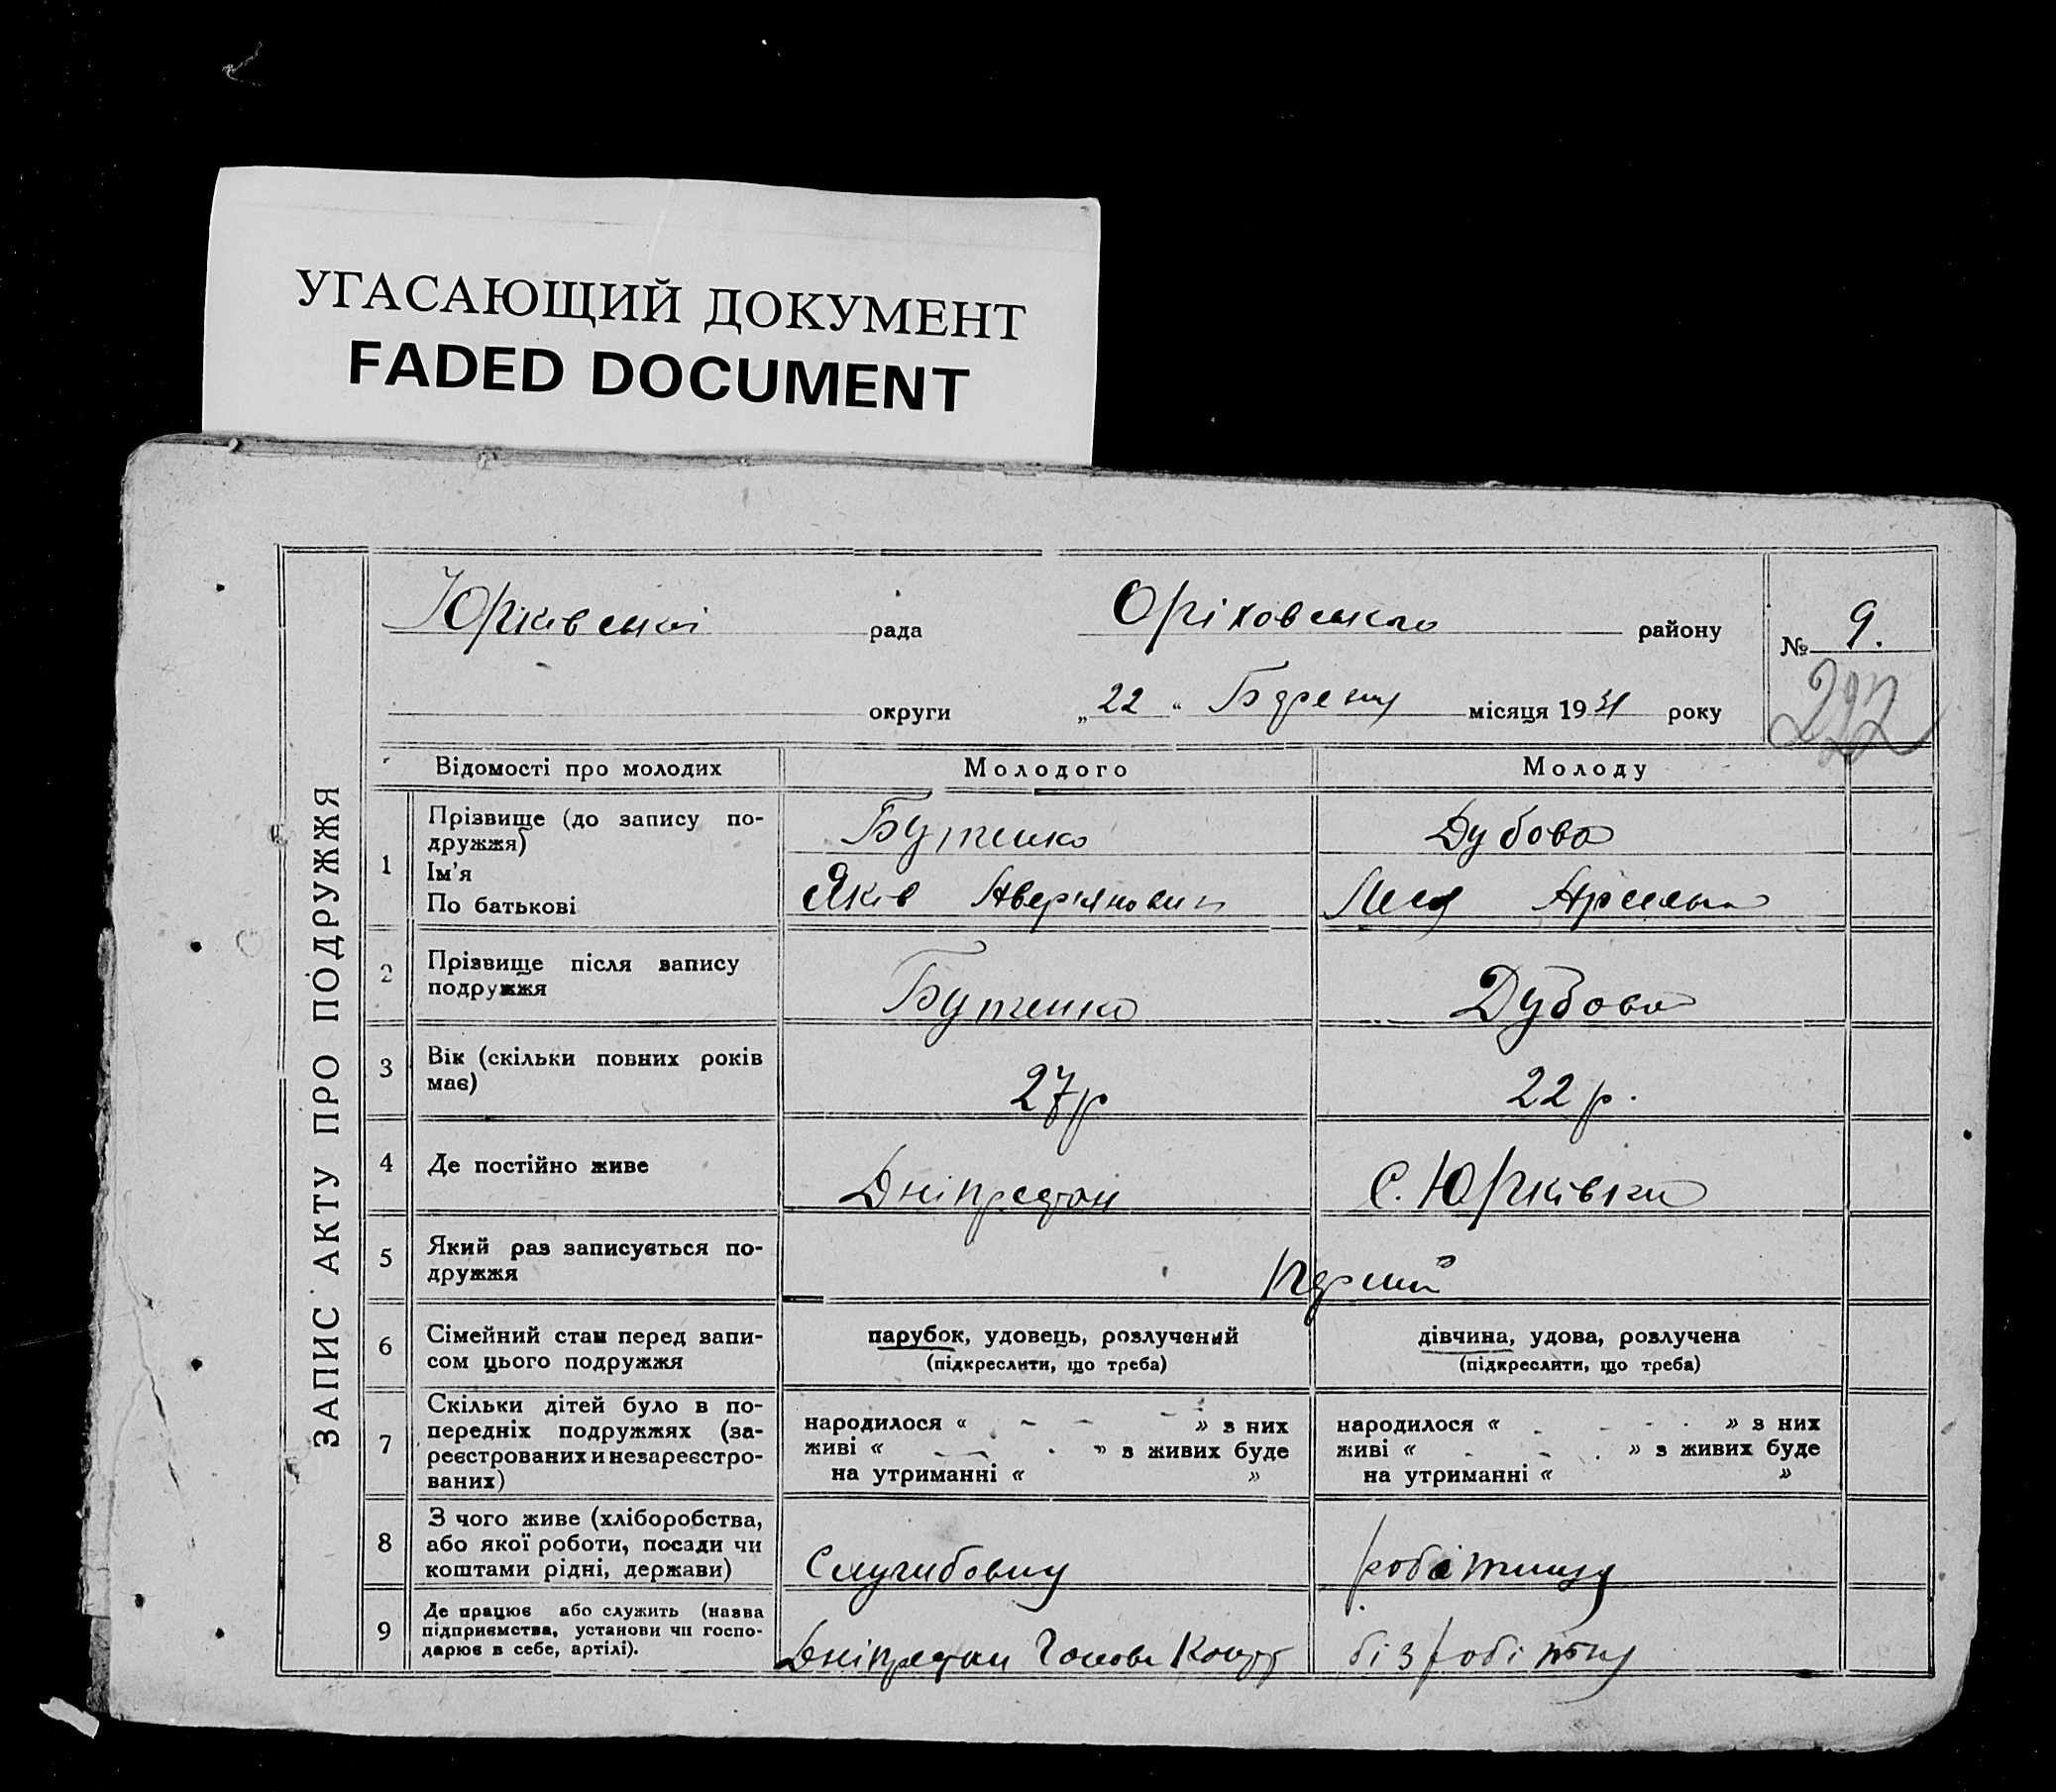 УГАСАЮЩИЙ ДОКУМЕНТ
FADED DOCUMENT
ЗАПИС АКТУ ПРО ПОДРУЖЖЯ
Юрківської рада Оріховського району № 9.
округи „22“ місяця 1931 року 292
Відомості про молодих Молодого Молоду
1 Прізвище (до запису по-
дружжя) Бутенко Дубова
Ім'я
По батькові Яків Авер'янович
2 Прізвище після запису
подружжя Бутенко Дубова
3 Вік (скільки повних років
має) 27р 22р.
4 Де постійно живе С. Юрківка
5 Який раз записується по-
дружжя
6 Сімейний стан перед запи-
сом цього подружжя парубок, удовець, розлучений дівчина, удова, розлучена
(підкреслити, що треба) (підкреслити, що треба)
7 Скільки дітей було в по-
передніх подружжях (за-
реєстрованих и незареєстро-
ваних)
народилося « - - - » з них народилося « - - - » з них
живі « - - » з живих буде живі « - - » з живих буде
на утриманні « » на утриманні « »
8 З чого живе (хліборобства,
або якої роботи, посади чи
коштами рідні, держави) робітниця
9 Де працює або служить (назва
підприємства, установи чи госпо-
дарює в себе, артілі).